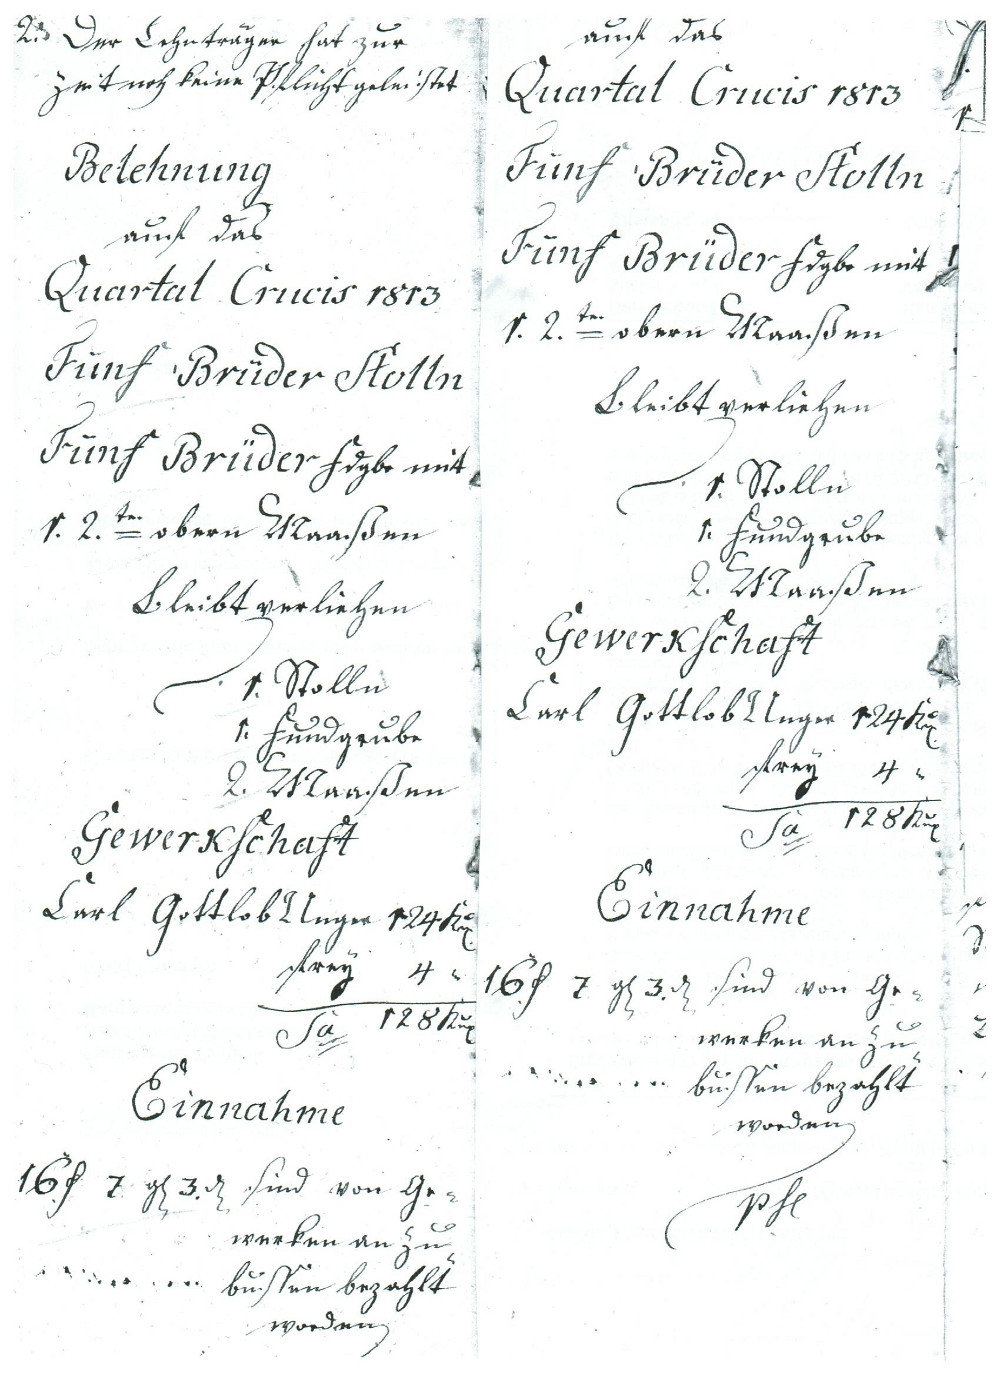 2. Der Lehnträger hat zur
Zeit noch keine Pflicht geleistet
Belehnung
auf das
Quartal Crucis 1813
Fünf Brüder Stolln
Fünf Brüder Fdgbe mit
1. 2.ter obern Maaßen
Bleibt verliehen
1. Stolln
1. Fundgrube
2. Maaßen
Gewerkschaft
Carl Gottlob Unger 124 Kux
frey 4 "
Sa 128 Kux
Einnahme
16 f 7 gl 3. d sind von Ge=
werken an Zu=
bussen bezahlt
worden
auf das
Quartal Crucis 1813
Fünf Brüder Stolln
Fünf Brüder Fdgbe mit
1. 2.ter obern Maaßen
Bleibt verliehen
1. Stolln
1. Fundgrube
2. Maaßen
Gewerkschaft
Carl Gottlob Unger 124 Kux
frey 4 "
Sa 128 Kux
Einnahme
16 f 7 gl 3. d sind von Ge=
werken an Zu=
bussen bezahlt
worden